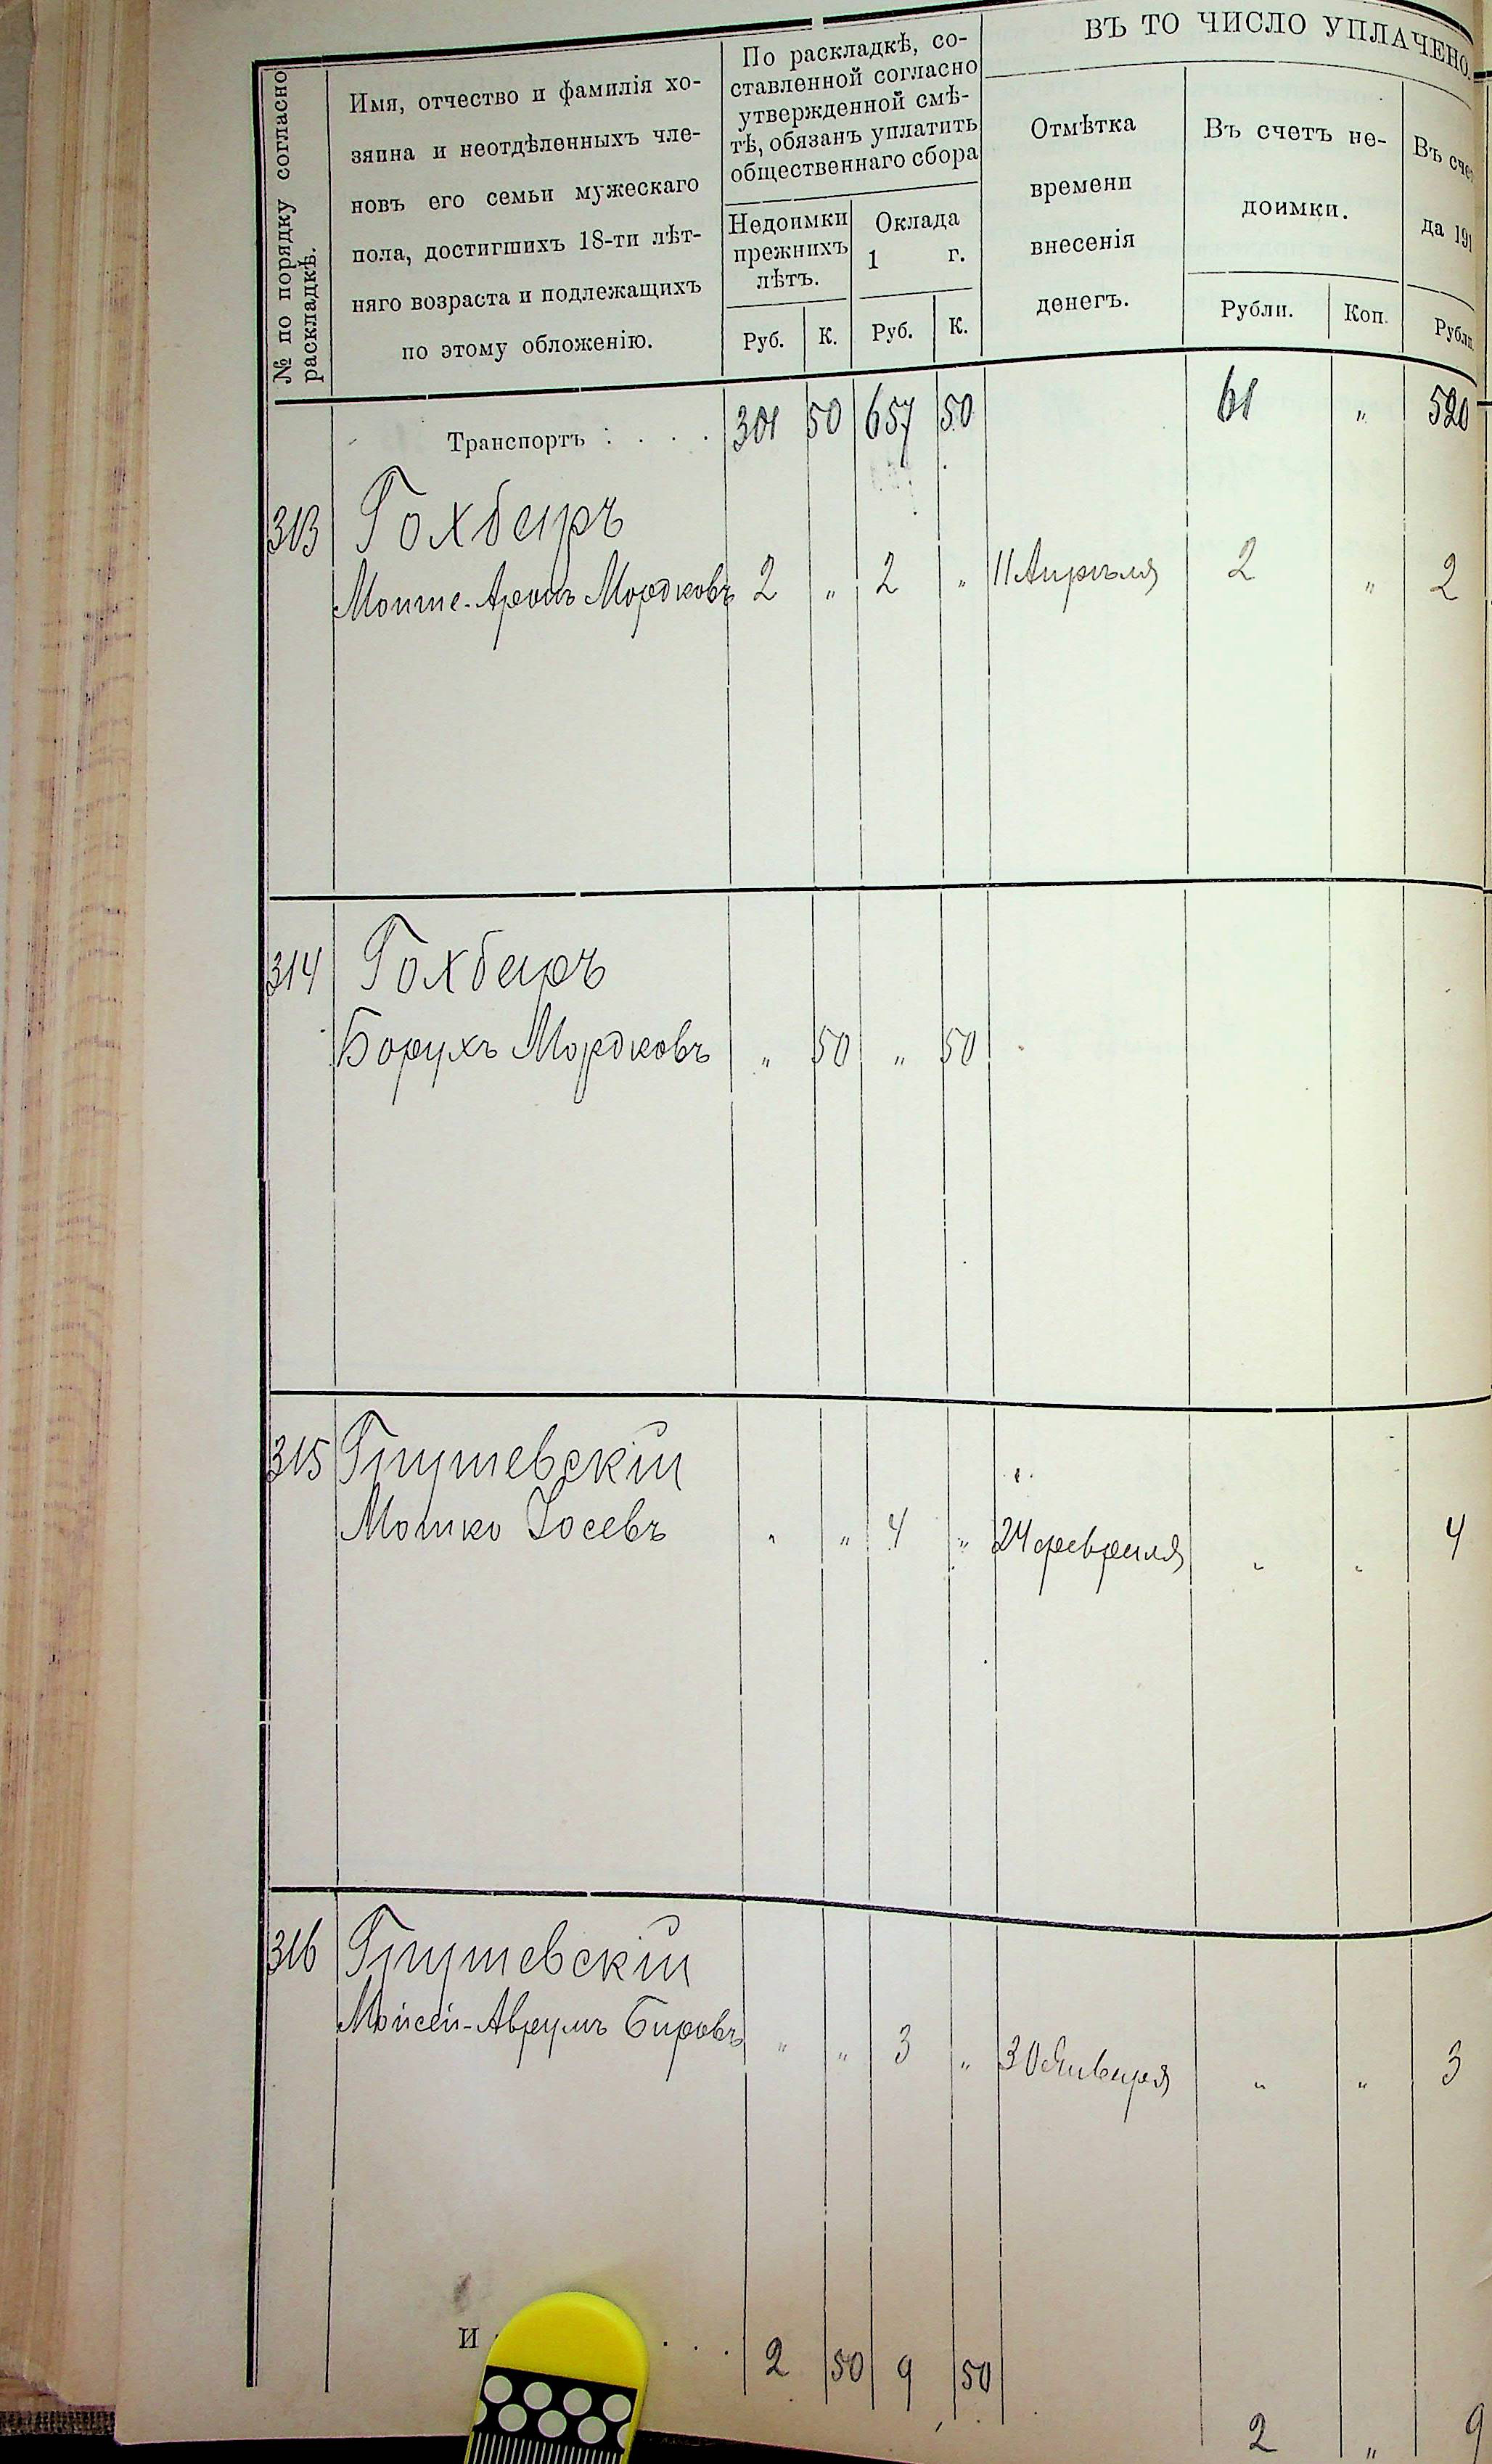 ВЪ ТО ЧИСЛО УПЛАЧЕНО.
№ по порядку согласно
раскладкѣ.
Имя, отчество и фамилія хо-
зяина и неотдѣленныхъ чле-
новъ его семьи мужескаго
пола, достигшихъ 18-ти лѣт-
няго возраста и подлежащихъ
по этому обложенію.
По раскладкѣ, со-
ставленной согласно
утвержденной смѣ-
тѣ, обязанъ уплатить
общественнаго сбора
Недоимки
прежнихъ
лѣтъ.
Оклада
1 г.
Отмѣтка
времени
внесенія
денегъ.
Въ счетъ не-
доимки.
Въ сче
да 191
Руб. К. Руб. К. Рубли. Коп. Рубли.
Транспортъ . . . . 301 50 657 50 61 „ 520
313 Гохберъ
Мошше-Аронъ Мордковъ 2 „ 2 „ 11 Апрѣля 2 „ 2
314 Гохберъ
Борухъ Мордковъ „ 50 „ 50
315 Глушевскій
Мошко Іосевъ „ „ 4 „ 24 февраля „ „ 4
316 Глушевскій
Мойсей-Аврумъ Беровъ „ „ 3 „ 30 Января „ „ 3
И . . . 2 50 9 50
2 „ 9